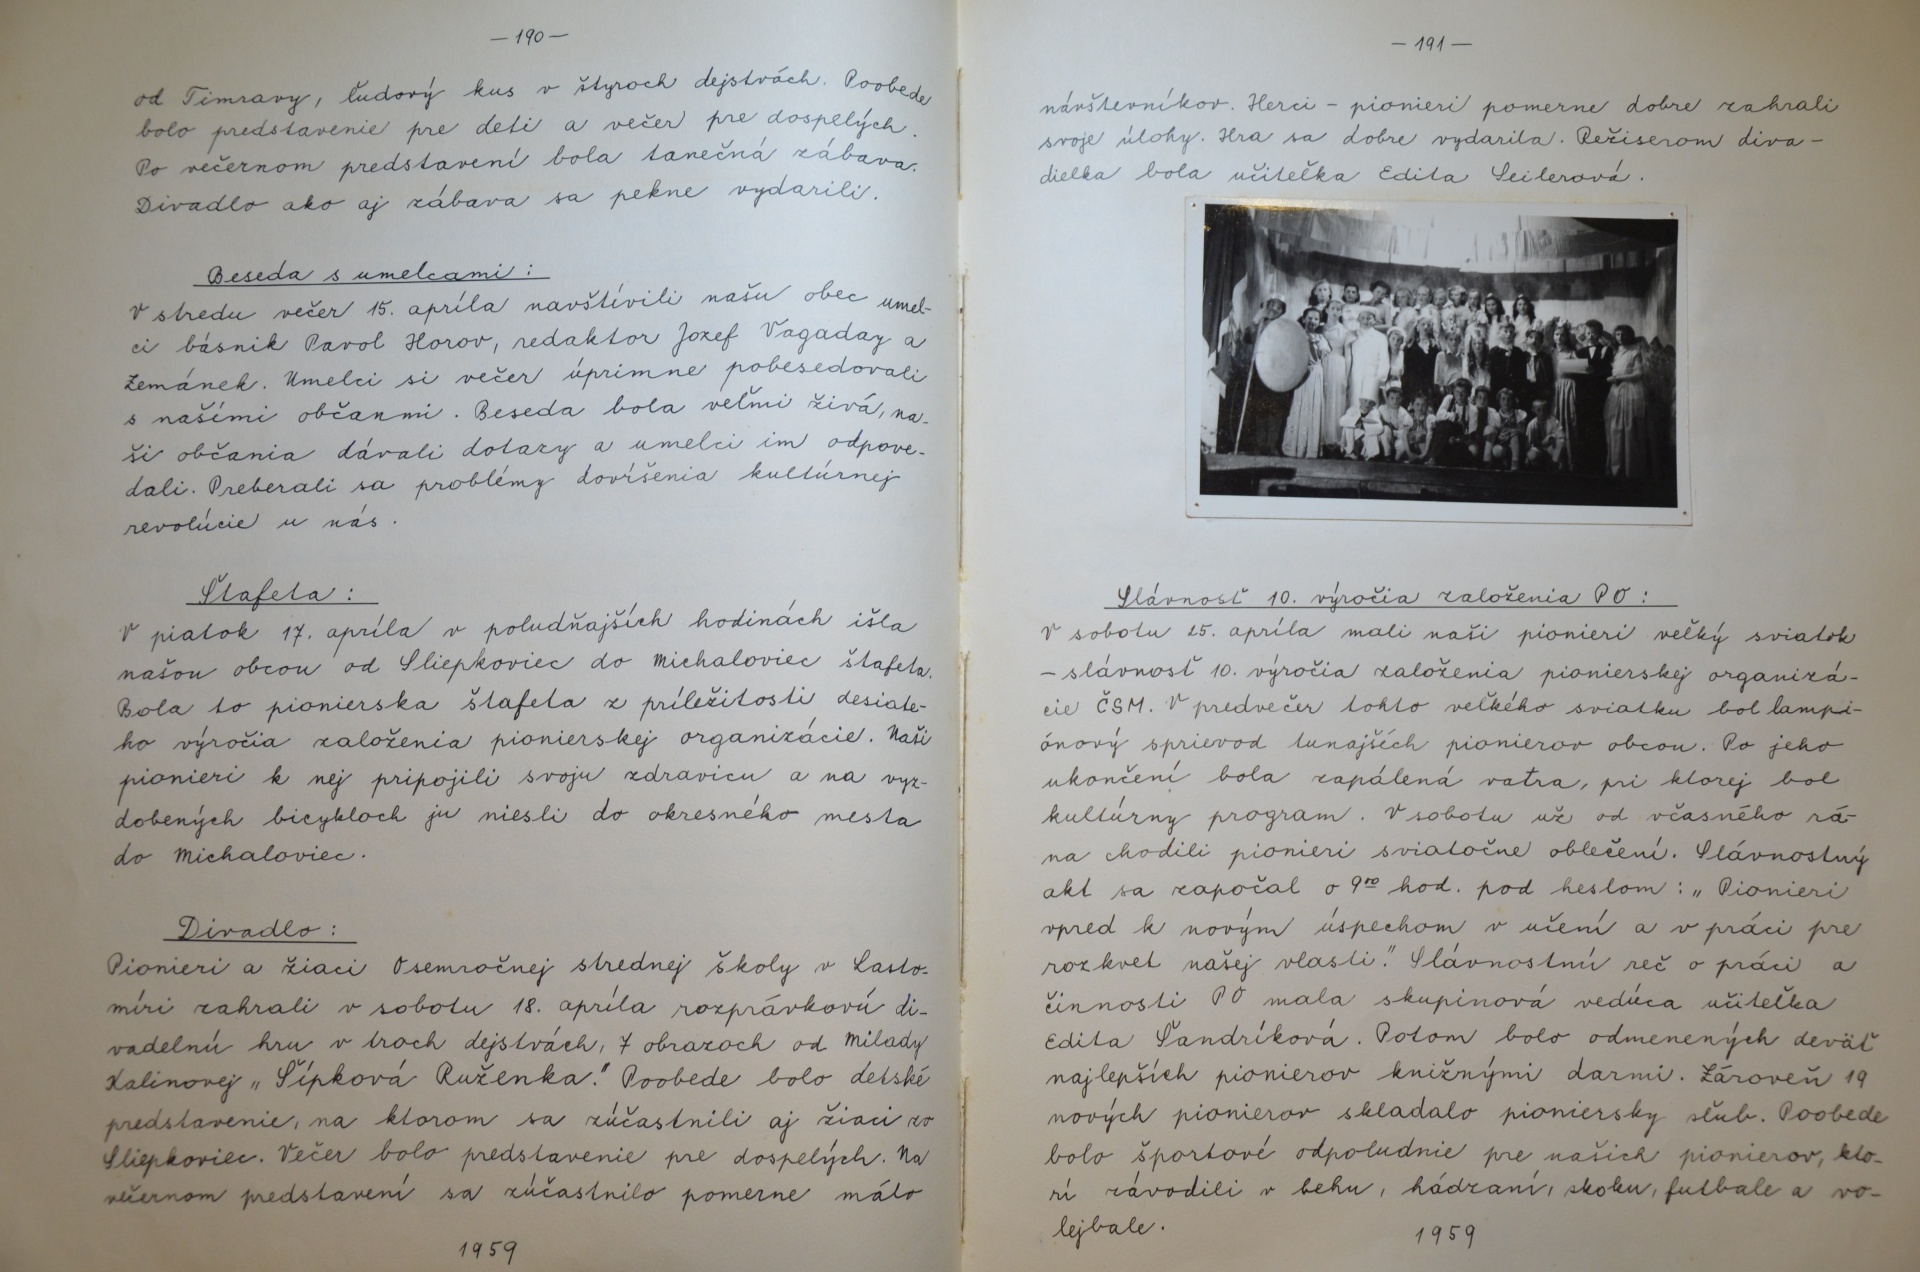 — 190 —
od Timravy, ľudový kus v štyroch dejstvách. Poobede
bolo predstavenie pre deti a večer pre dospelých.
Po večernom predstavení bola tanečná zábava.
Divadlo ako aj zábava sa pekne vydarili.
Beseda s umelcami:
V stredu večer 15. apríla navštívili našu obec umel-
ci básnik Pavol Horov, redaktor Jozef Vagaday a
Zemánek. Umelci si večer úprimne pobesedovali
s našími občanmi. Beseda bola veľmi živá, na-
ši občania dávali dotazy a umelci im odpove-
dali. Preberali sa problémy dovŕšenia kultúrnej
revolúcie u nás.
Štafeta:
V piatok 17. apríla v poludňajších hodinách išla
našou obcou od Sliepkoviec do Michaloviec štafeta.
Bola to pionierska štafeta z príležitosti desiate-
ho výročia založenia pionierskej organizácie. Naši
pionieri k nej pripojili svoju zdravicu a na vyz-
dobených bicykloch ju niesli do okresného mesta
do Michaloviec.
Divadlo:
Pionieri a žiaci Osemročnej strednej školy v Lasto-
míri zahrali v sobotu 18. apríla rozprávkovú di-
vadelnú hru v troch dejstvách, 7 obrazoch od Milady
Kalinovej „Šípková Ruženka." Poobede bolo detské
predstavenie, na ktorom sa zúčastnili aj žiaci zo
Sliepkoviec. Večer bolo predstavenie pre dospelých. Na
večernom predstavení sa zúčastnilo pomerne málo
1959
— 191 —
návštevníkov. Herci - pionieri pomerne dobre zahrali
svoje úlohy. Hra sa dobre vydarila. Režiserom diva-
dielka bola učiteľka Edita Seilerová.
Slávnosť 10. výročia založenia PO:
V sobotu 25. apríla mali naši pionieri veľký sviatok
- slávnosť 10. výročia založenia pionierskej organizá-
cie ČSM. V predvečer tohto veľkého sviatku bol lampi-
ónový sprievod tunajších pionierov obcou. Po jeho
ukončení bola zapálená vatra, pri ktorej bol
kultúrny program. V sobotu už od včasného rá-
na chodili pionieri sviatočne oblečení. Slávnostný
akt sa započal o 9⁰⁰ hod. pod heslom: „Pionieri
vpred k novým úspechom v učení a v práci pre
rozkvet našej vlasti." Slávnostnú reč o práci a
činnosti PO mala skupinová vedúca učiteľka
Edita Šandríková. Potom bolo odmenených deväť
najlepších pionierov knižnými darmi. Zároveň 19
nových pionierov skladalo pioniersky sľub. Poobede
bolo športové odpoludnie pre našich pionierov, kto-
rí závodili v behu, hádzaní, skoku, futbale a vo-
lejbale.
1959